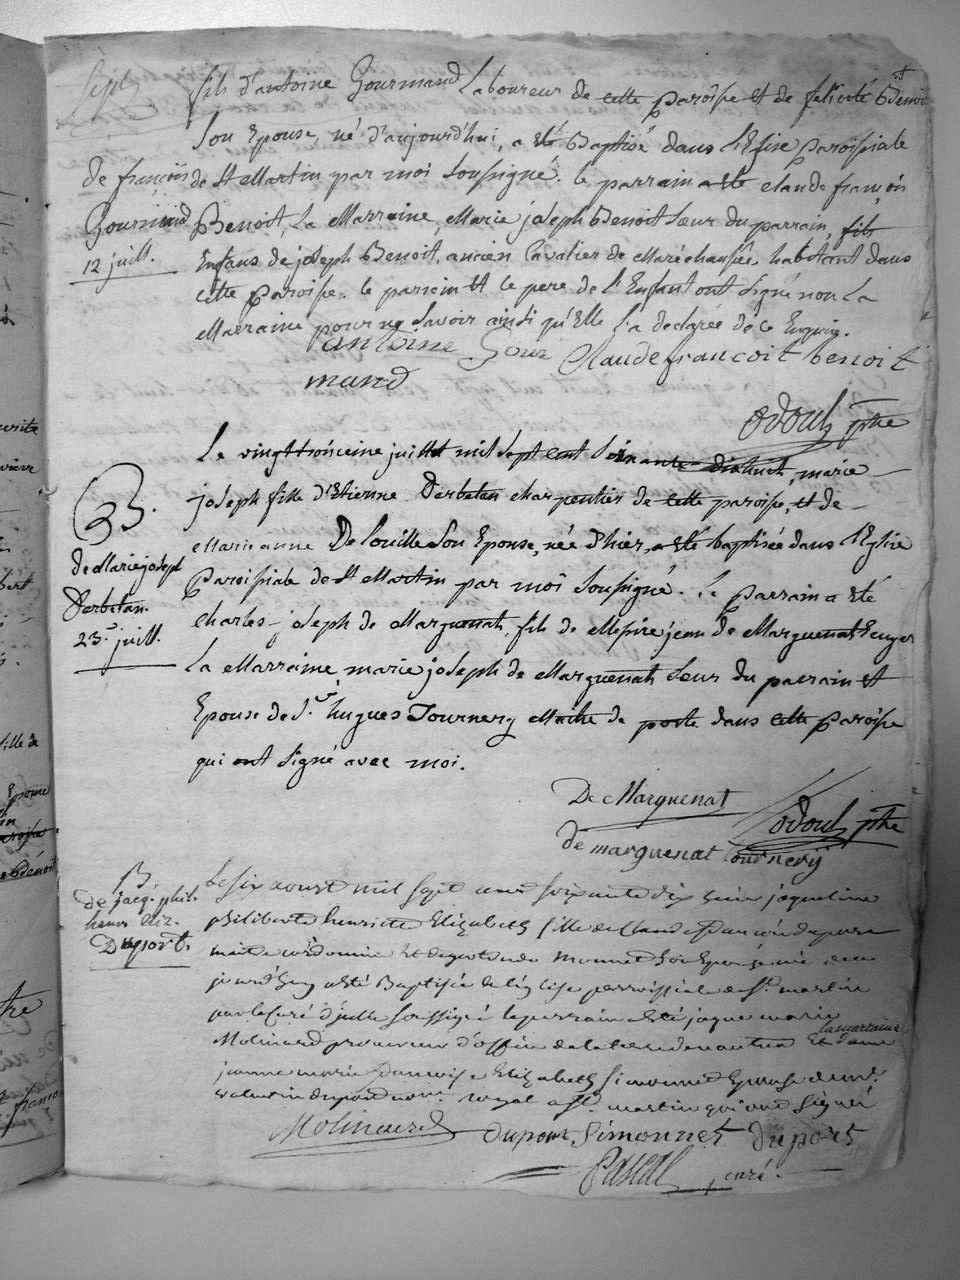 fils d'antoine Gourmand Laboureur de cette paroisse et de felicité Benoit
son Epouse, né d'aujourd'hui, a eté Baptisé dans l'Eglise paroissiale
de françois
de St Martin par moi soussigné. le parrain a eté claude françois
Gourmand
Benoit, La Marraine, Marie joseph Benoit soeur du parrain, fils
12 juill.
Enfans de joseph Benoit, ancien Cavalier de Maréchaussée habitant dans
cette paroisse. le parrain et le pere de l'Enfant ont signé non La
Marraine pour ne savoir ainsi qu'Elle l'a declarée de ce Enquise.
antoine Gour claude francoit benoit
mand
odoul ptre
Le vingttroisieme juillet mil sept cent soixante-dixhuit, marie
B.
joseph fille d'Etienne Derbetan charpentier de cette paroisse, et de
Marieanne De Louille son Epouse, née d'hier, a eté baptisée dans l'Eglise
de Marie joseph
Paroissiale de St Martin par moi soussigné. Le parrain a eté
Derbetan.
charles-joseph de Marguenat, fils de Messire jean de Marguenat Ecuyer
23. juill.
La Marraine, marie joseph de Marguenat soeur du parrain et
Epouse de Sr. hugues Tournery Maitre de poste dans cette paroisse
qui ont signé avec moi.
De Marguenat
odoul ptre
de marguenat tournerÿ
B
Le six aoust mil sept cent soixante dix huit jaqueline
de jacq. phil.
philiberte henriette Elizabeth fille de Claude
henr. eliz.
Duport.
maitre cordonnier et de Monnet son Epouse née
jourd'huy a eté Baptisée de l'église parroissiale de St. martin
par le curé soussigné le parrain a eté jaque marie
la marraine
Molinard procureur d'office de la terre de et dame
jeanne marie Elizabeth simonnet Epouse de mr.
royal a St. martin qui ont signé
Molinard dupont simonnet duport
Pascal, curé.